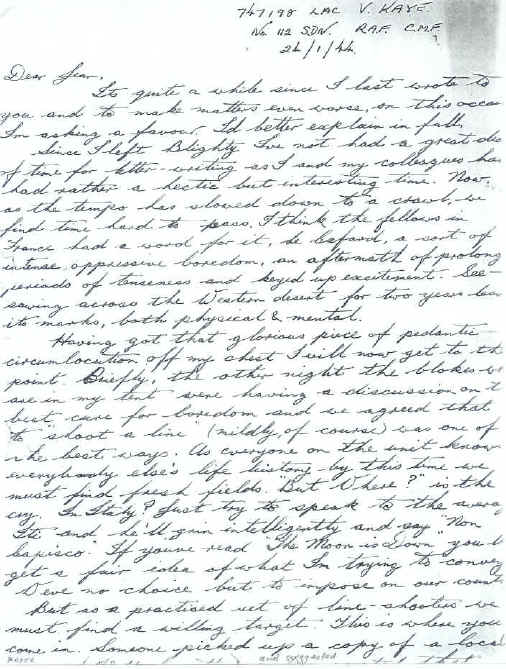 747198 LAC V. KAYE.
No 112 SDN. R.A.F. C.M.F.
24/1/44
Dear Jean,
Its quite a while since I last wrote to
you and to make matters even worse, on this occa
I'm asking a favour, I'd better explain in full.
Since I left Blighty I've not had a great dea
of time for letter-writing as I and my colleagues ha
had rather a hectic but interesting time. Now,
as the tempo has slowed down to a crawl, we
find time hard to pass, I think the fellows in
France had a word for it, le cafard, a sort of
intense, oppressive boredom, an aftermath of prolong
periods of tenseness and keyed up excitement. See-
sawing across the Western desert for two years leav
its marks, both physical & mental.
Having got that glorious piece of pedantic
circumlocution off my chest I will now get to th
point. Briefly, the other night the blokes w
are in my tent were having a discussion on t
best cure for boredom and we agreed that
to "shoot a line" (mildly, of course) was one of
the best ways. As everyone on the unit know
everybody else's life history by this time we
must find fresh fields. "But Where?" is the
cry. In Italy? Just try to speak to the avera
Iti and he'll grin intelligently and say "Non
capisco." If you've read "The Moon is Down" you'l
get a fair idea of what I'm trying to convey
I've no choice but to impose on our count
But as a practised set of line-shooters we
must find a willing target. This is where you
come in. Someone picked up a copy of a local
and suggested that